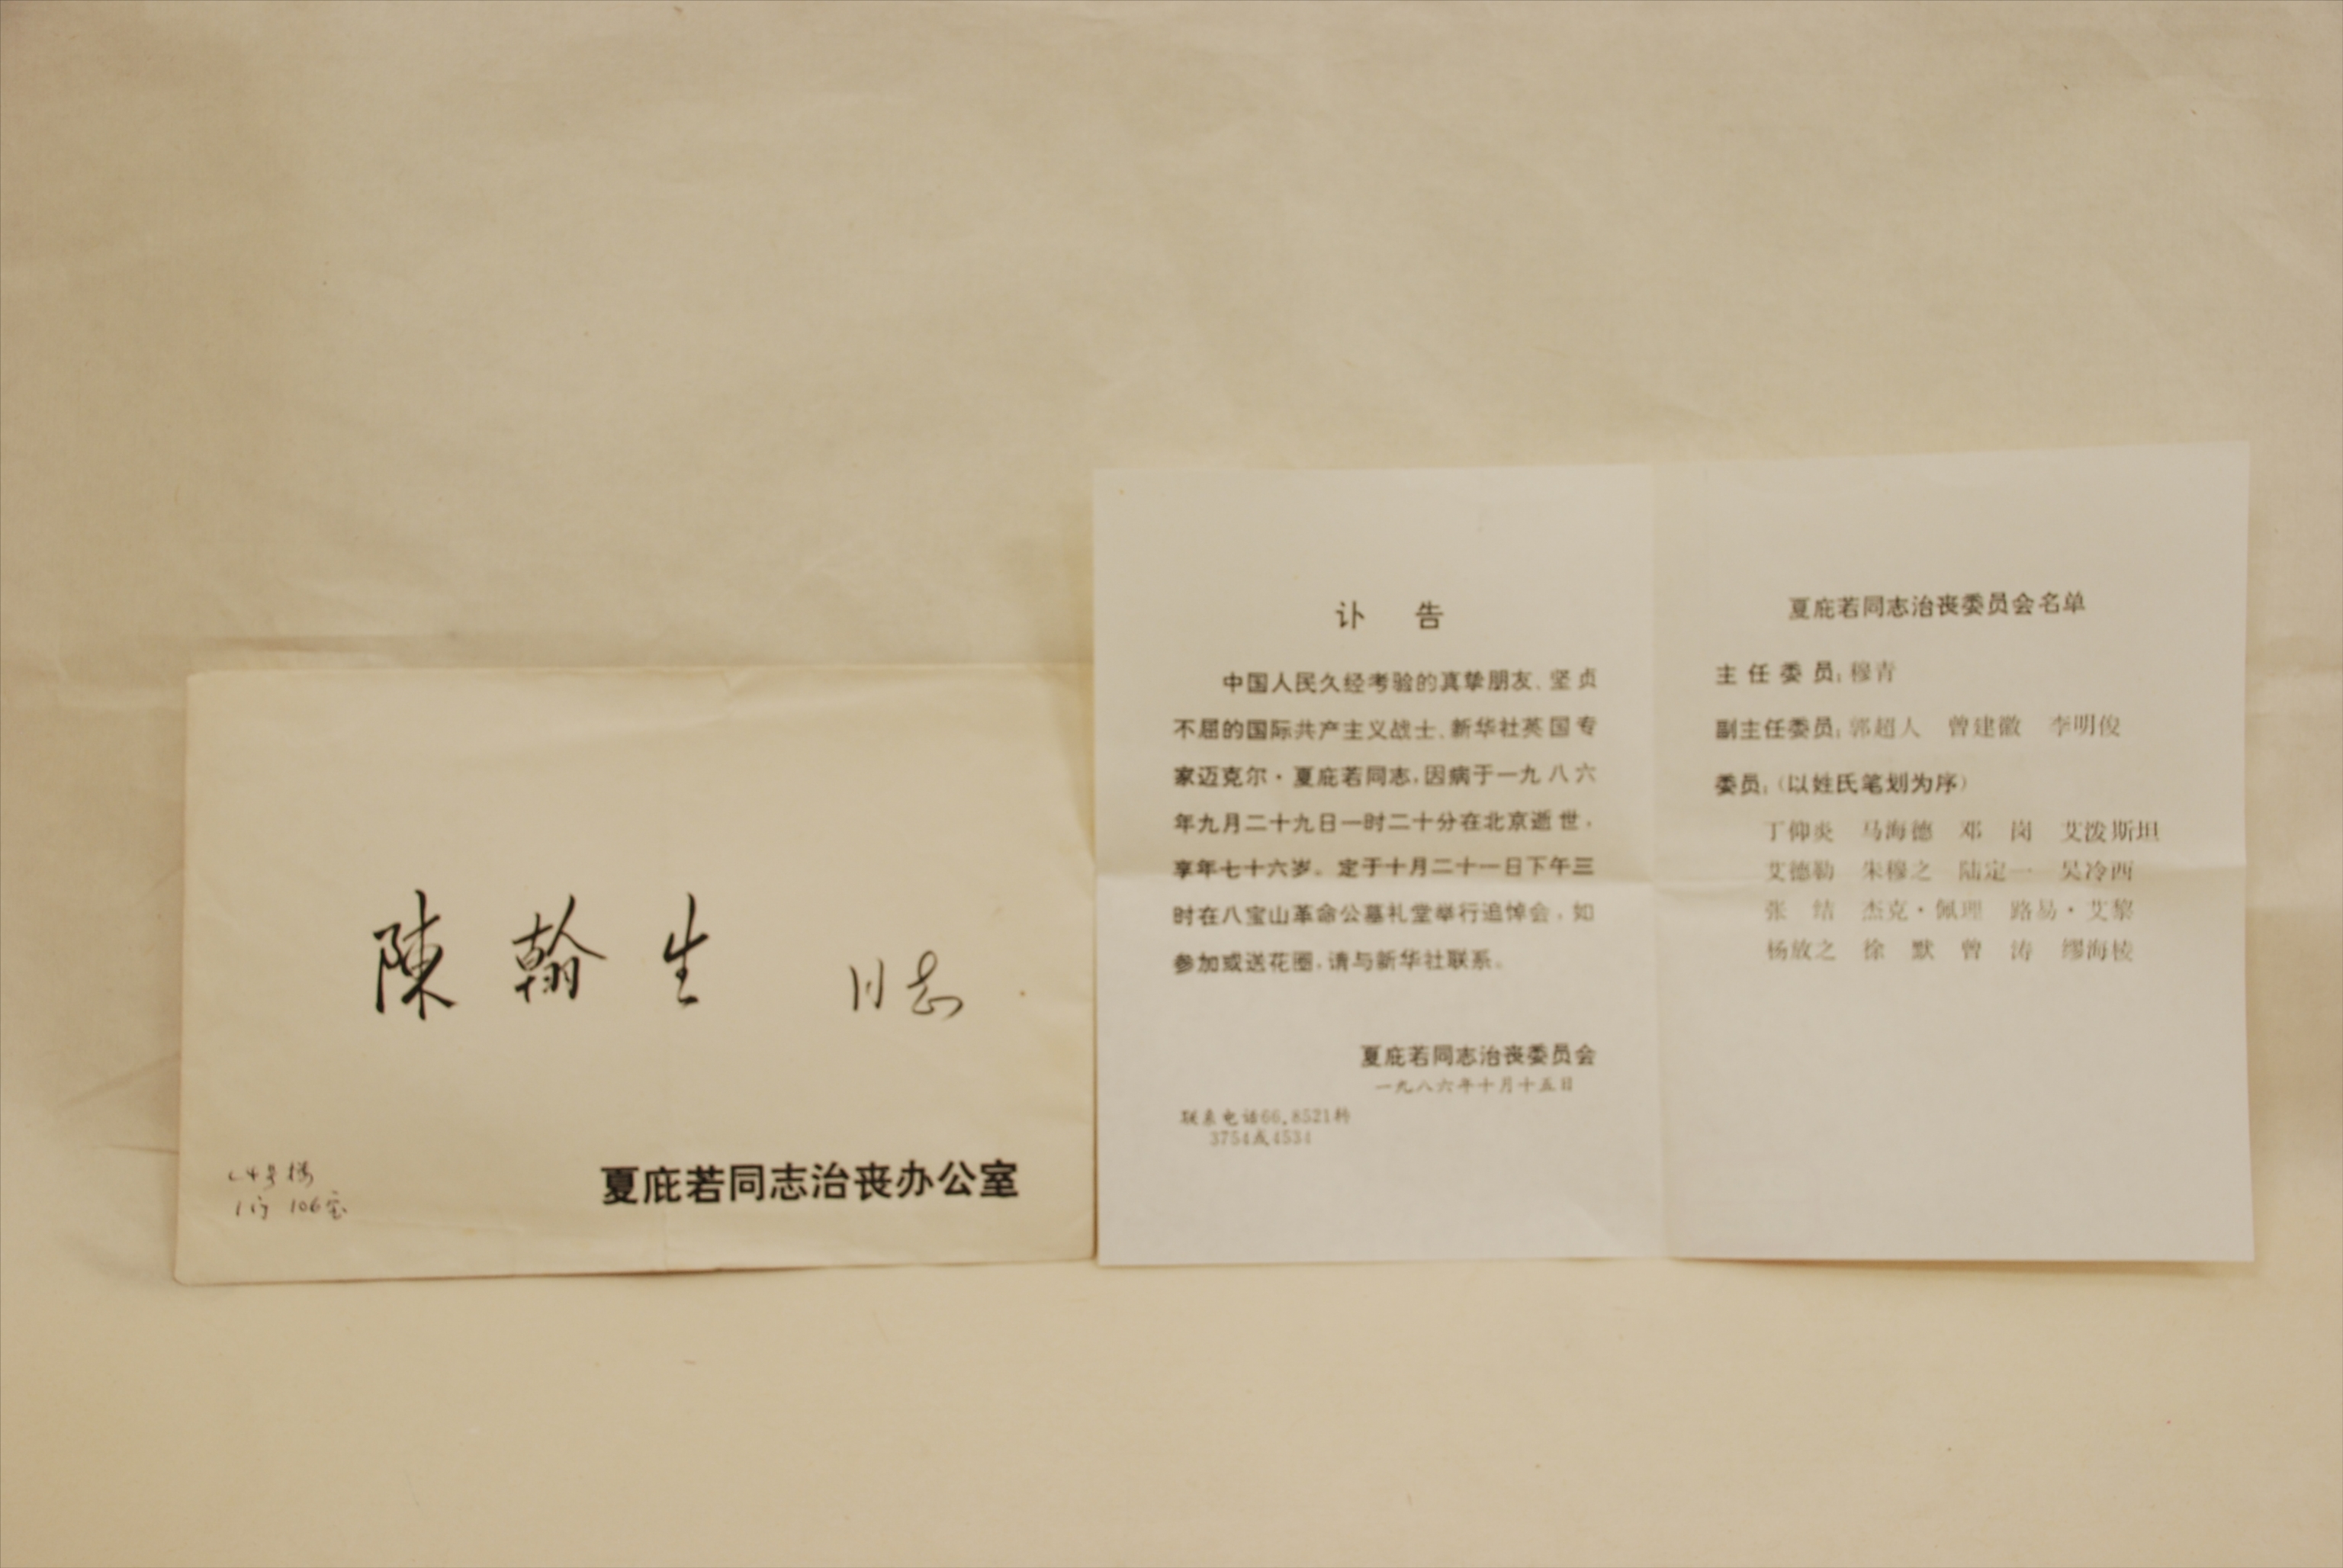 陳翰生 同志
24号楼
1门 106室
夏庇若同志治丧办公室
讣 告
中国人民久经考验的真挚朋友、坚贞
不屈的国际共产主义战士、新华社英国专
家迈克尔·夏庇若同志,因病于一九八六
年九月二十九日一时二十分在北京逝世,
享年七十六岁。定于十月二十一日下午三
时在八宝山革命公墓礼堂举行追悼会,如
参加或送花圈,请与新华社联系。
夏庇若同志治丧委员会
一九八六年十月十五日
联系电话66.8521转
3754或4534
夏庇若同志治丧委员会名单
主任委员:穆青
副主任委员:郭超人 曾建徽 李明俊
委员:(以姓氏笔划为序)
丁仰炎 马海德 邓 岗 艾泼斯坦
艾德勒 朱穆之 陆定一 吴冷西
张 结 杰克·佩理 路易·艾黎
杨放之 徐 默 曾 涛 缪海棱